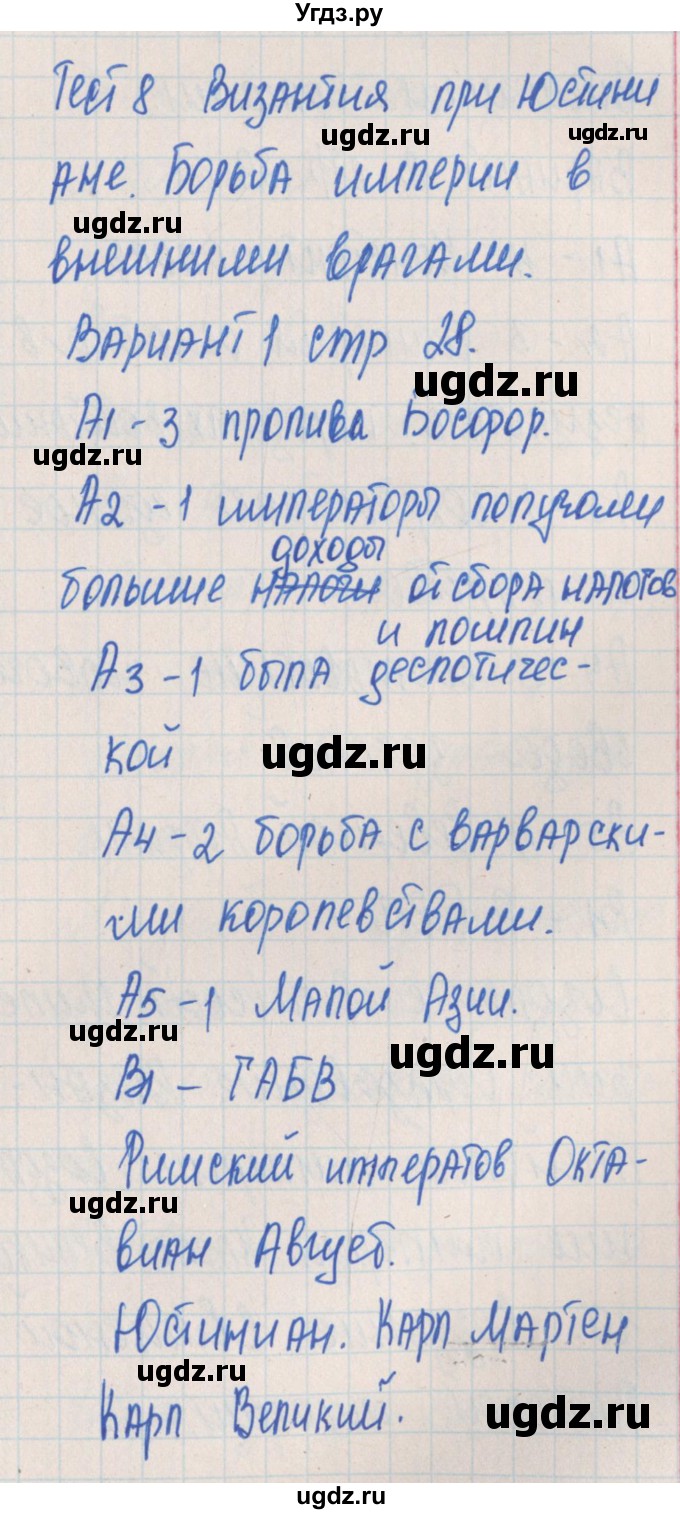 Угдз.ру
Тест 8 Византия при Юстини
ugdz.ru ugdz.ru
ане. Борьба империи в
ugdz.ru
внешними врагами.
Вариант 1 стр 28.
ugdz.ru
А1 - 3 пролива Босфор.
ugdz.ru
А2 - 1 императоры получали
доходы
больше налоги от сбора налогов
и пошлин
А3 - 1 была деспотичес-
кой ugdz.ru
А4 - 2 борьба с варварски-
ми королевствами.
А5 - 1 Малой Азии.
ugdz.ru ugdz.ru
В1 - ГАБВ
Римский императов Окта-
ugdz.ru
виан Август.
Юстиниан. Карл Мартен
ugdz.ru
Карл Великий. ugdz.ru
ugdz.ru